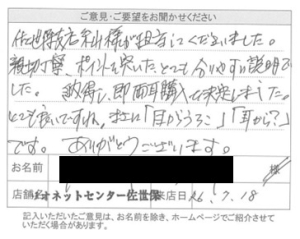 ご意見・ご要望をお聞かせください
佐世保支店 様が担当してくださいました。
親切丁寧、ポイントを突いた、とても分りやすい説明で
した。 納得し、即両耳購入を決定しました。
とても良いですね。まさに「目からうろこ」「耳から?」
です。ありがとうございます。
お名前 様
店舗名 オネットセンター佐世保 来店日 26.7.18
記入いただいたご意見は、お名前を除き、ホームページでご紹介させて
いただく場合があります。